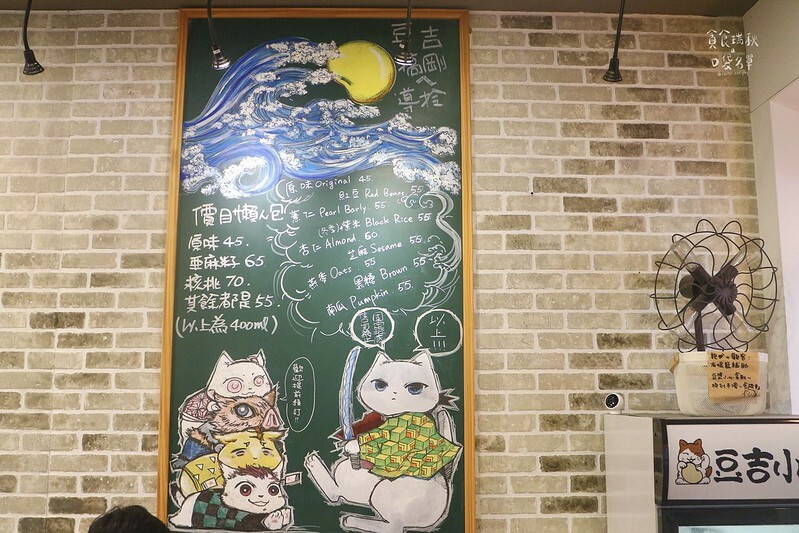 貪食瑞秋
a
口袋名單
吉岡へ拴
豆穚導
原味 Original 45.
紅豆 Red Beans 55
薏仁 Pearl Barly 55
(冬季)紫米 Black Rice 55
杏仁 Almond 60
芝麻 Sesame 55
燕麥 Oats 55
黑糖 Brown 55
南瓜 Pumpkin 55.
價目懶人包
原味 45.
亞麻籽 65
核桃 70.
其餘都是 55.
(以上為 400ml)
以上!!!
歡迎提前預訂!!
豆吉小